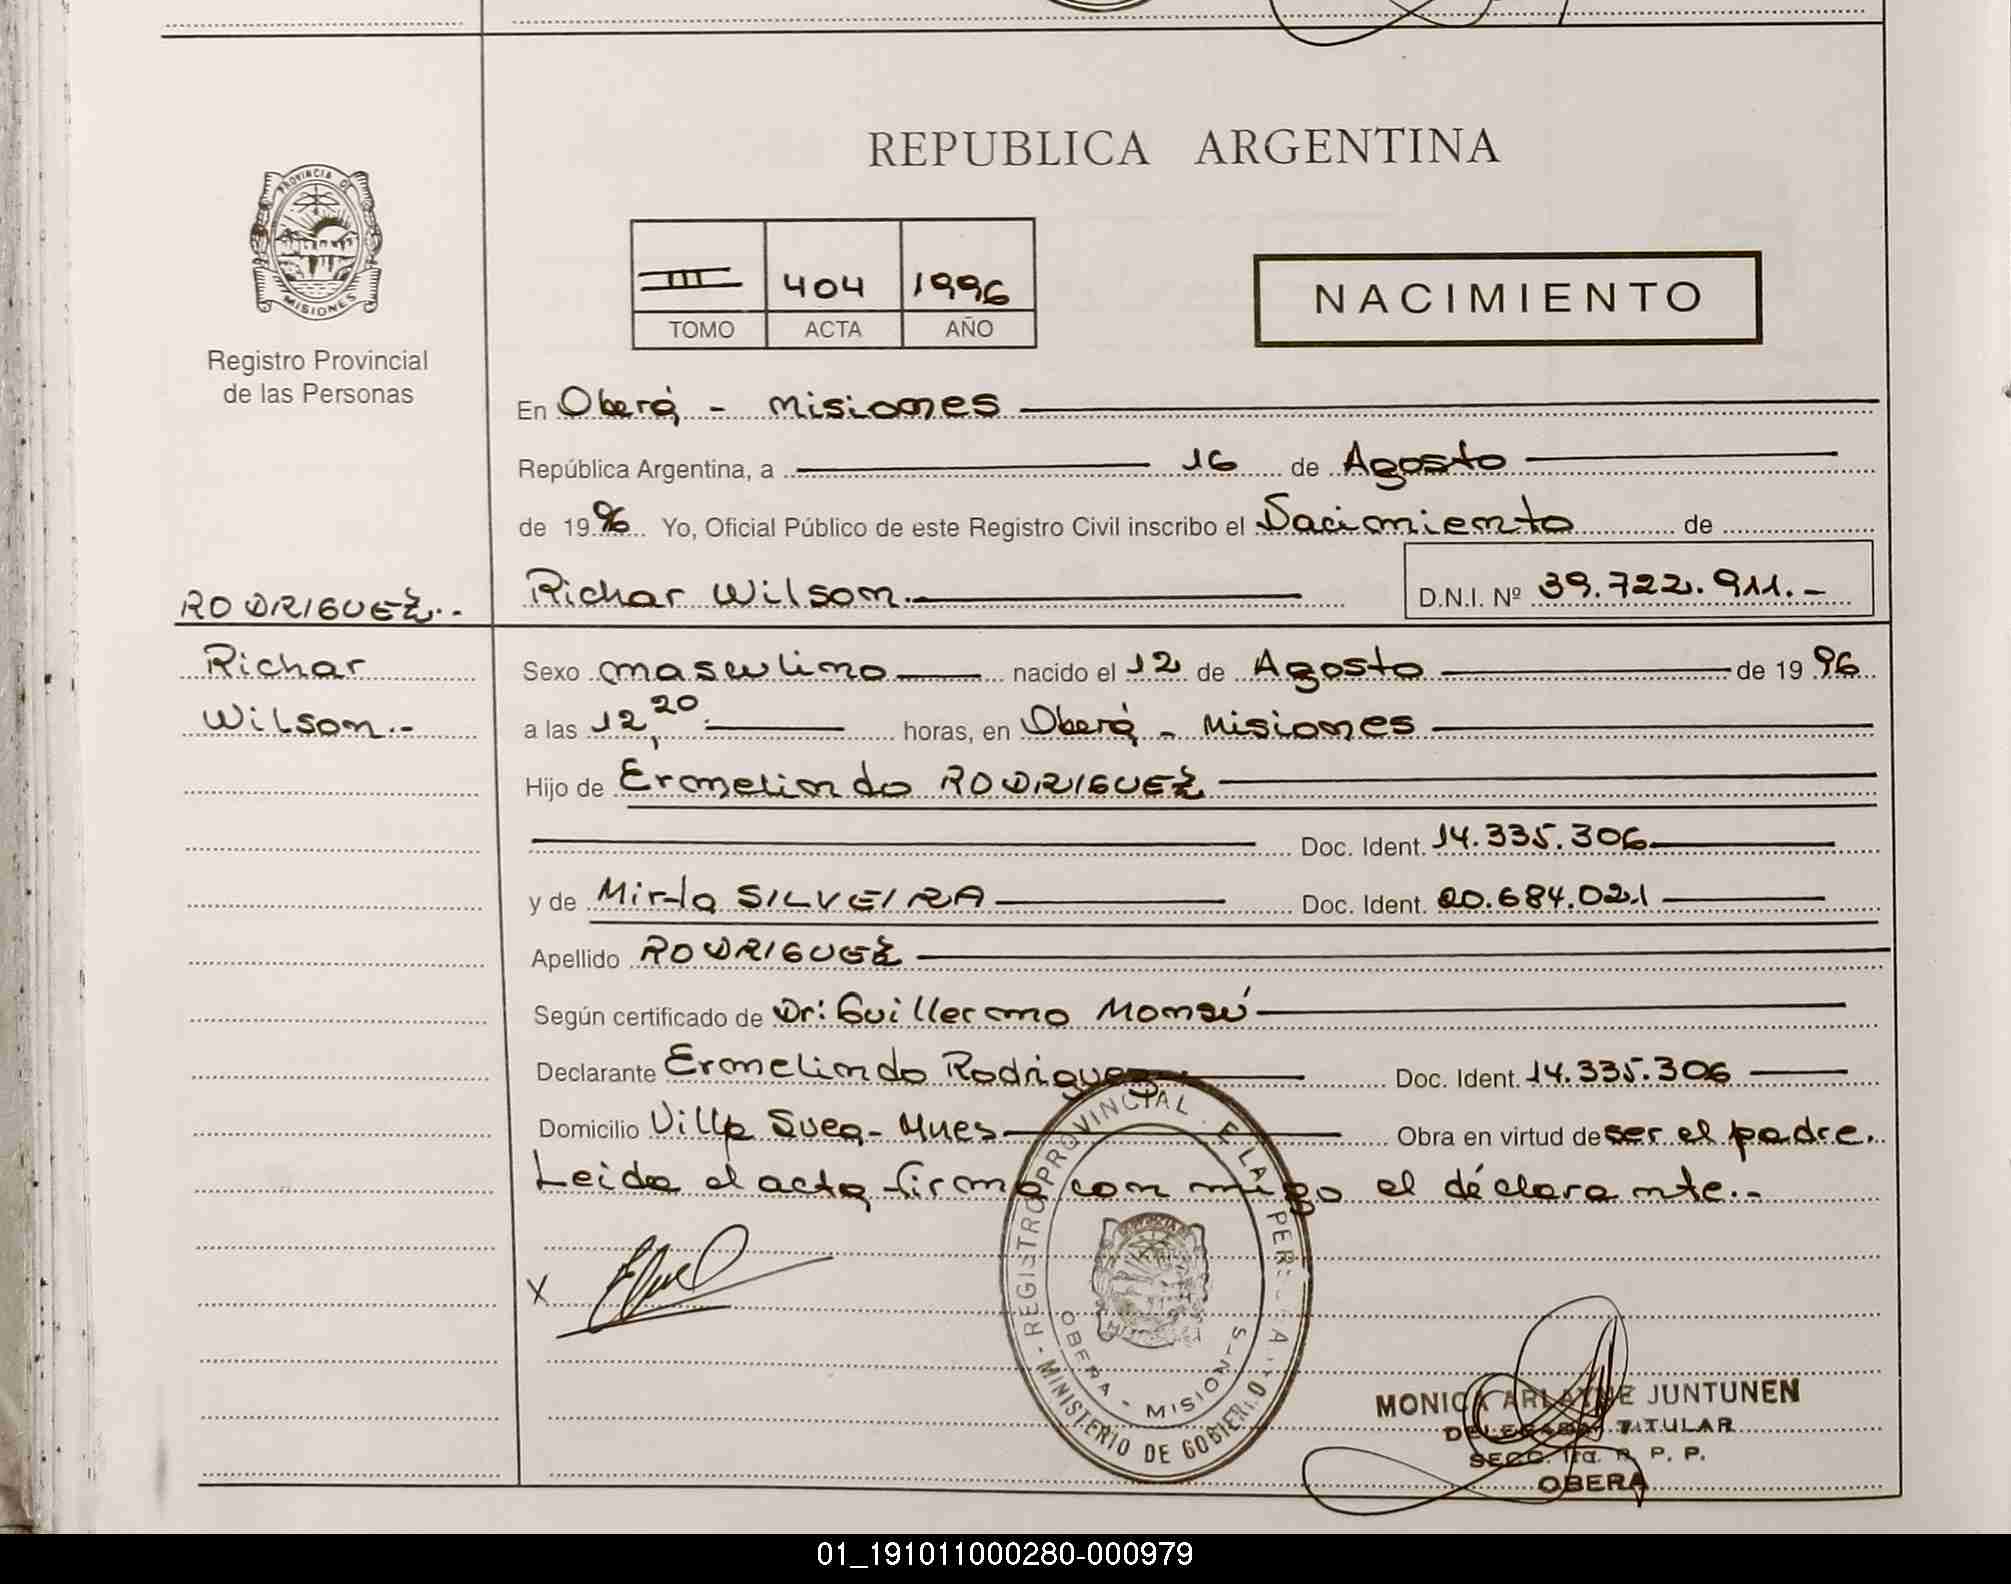 REPUBLICA ARGENTINA
PROVINCIA DE
MISIONES
Registro Provincial
de las Personas
III 404 1996
TOMO ACTA AÑO
NACIMIENTO
En Oberá - Misiones
República Argentina, a 16 de Agosto
de 1996 Yo, Oficial Público de este Registro Civil inscribo el Nacimiento de
RODRIGUEZ.- Richar Wilson.- D.N.I. Nº 39.722.911.-
Richar Sexo masculino nacido el 12 de Agosto de 1996
Wilson.- a las 12,20. horas, en Oberá - Misiones
Hijo de Ermelindo RODRIGUEZ
Doc. Ident. 14.335.306
y de Mirla SILVEIRA Doc. Ident. 20.684.021
Apellido RODRIGUEZ
Según certificado de Dr: Guillermo Monsú
Declarante Ermelindo Rodriguez Doc. Ident. 14.335.306
Domicilio Villa Sueca- Mnes Obra en virtud de ser el padre.
Leida el acta firma con migo el declarante.-
X
REGISTRO PROVINCIAL DE LAS PERSONAS
MINISTERIO DE GOBIERNO
OBERA - MISIONES
MONICA ARLAYNE JUNTUNEN
DELEGADA TITULAR
SECC. 1ra. R. P. P.
OBERA
01_191011000280-000979